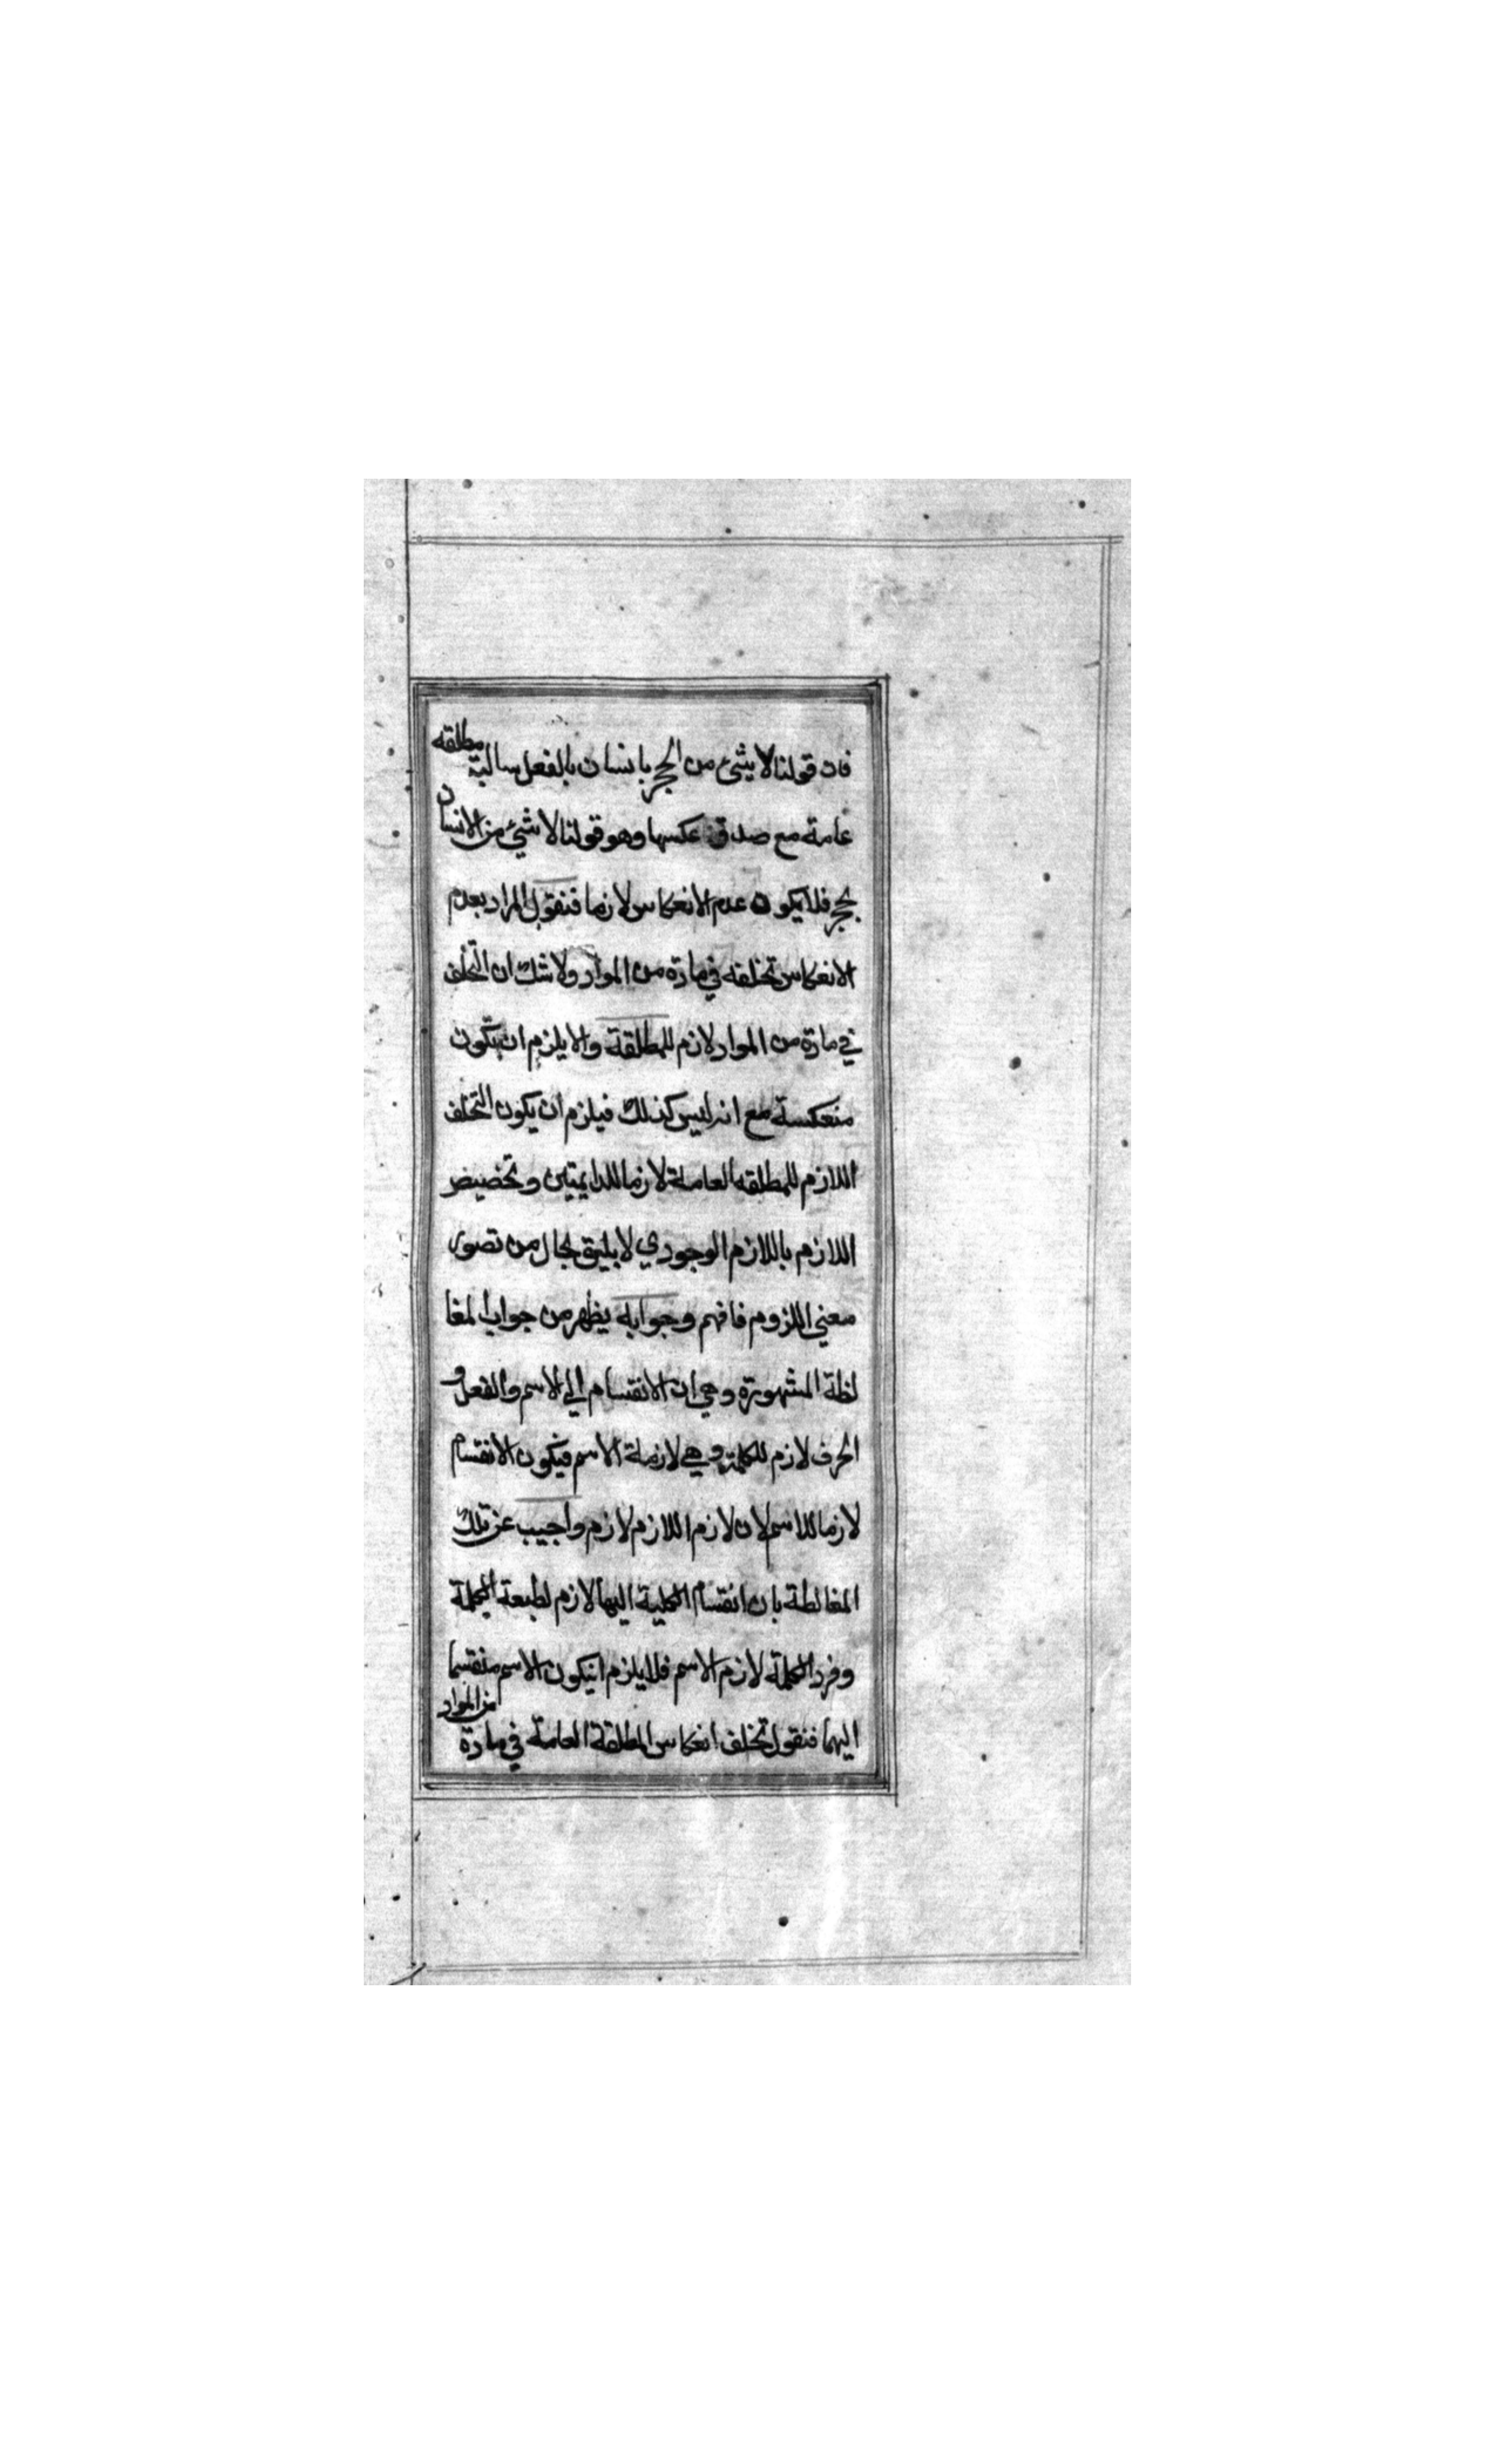 فان قولنا لا شئ من الحجر بانسان بالفعل سالبة مطلقه
عامة مع صدق عكسها وهو قولنا لا شئ من الانسان
بحجر فلا يكون عدم الانعكاس لازما فنقول المراد بعدم
الانعكاس تخلفه في مادة من المواد ولا شك ان التخلف
في مادة من المواد لازم للمطلقة والا يلزم ان يكون
منعكسة مع انه ليس كذلك فيلزم ان يكون التخلف
اللازم للمطلقه العامة لازما للدايمتين وتخضيض
اللازم باللازم الوجودي لا يليق بحال من تصور
معني اللزوم فافهم وجوابه يظهر من جواب المغا
لطة المشهورة وهي ان الانقسام الي الاسم والفعل و
الحرف لازم للكلمة وهي لازمة الاسم فيكون الانقسام
لازما للاسم لان لازم اللازم لازم واجيب عن تلك
المغالطة بان انقسام الكلية اليها لازم لطبعة الكلمة
وفرد الكلمة لازم الاسم فلا يلزم انيكون الاسم منقسما
اليهما فنقول تخلف انعكاس المطلقة العامة في مادة من المواد